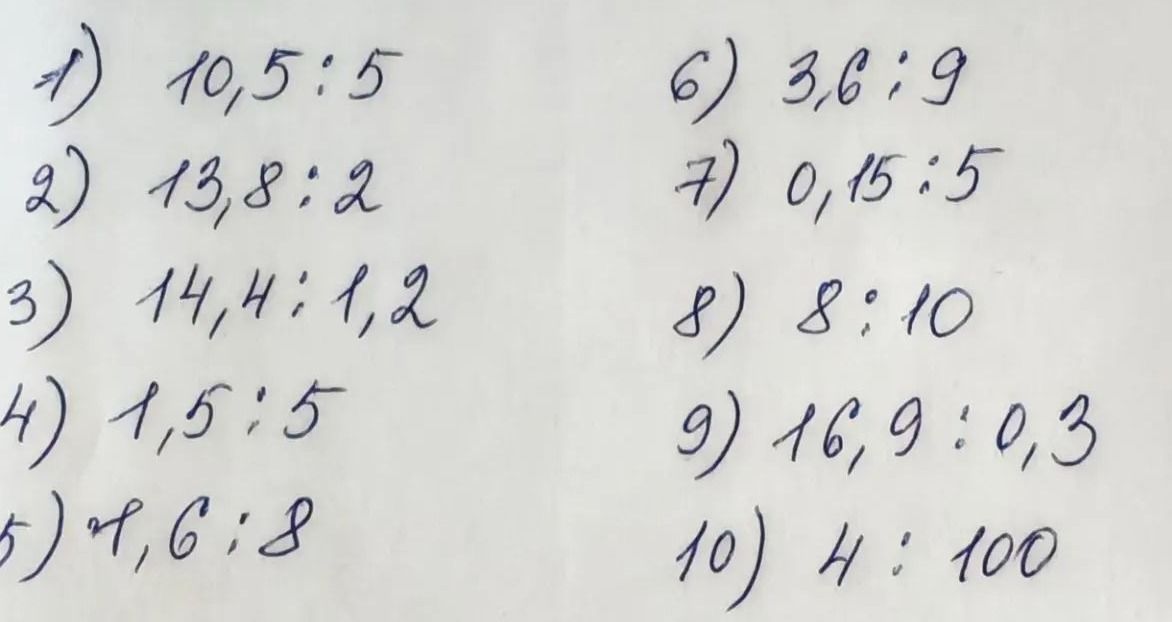 1) 10,5 : 5
2) 13,8 : 2
3) 14,4 : 1,2
4) 1,5 : 5
5) 1,6 : 8
6) 3,6 : 9
7) 0,15 : 5
8) 8 : 10
9) 16,9 : 0,3
10) 4 : 100